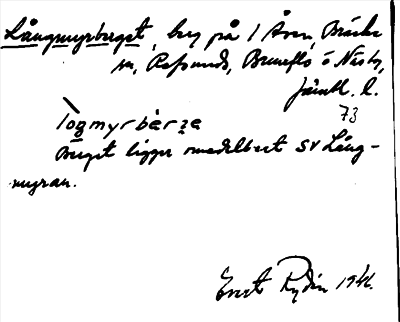 Långmyrberget, berg på 1 Åsen, Bräcke
sn, Refsunds, Brunflo o Näs tg,
Jämtl. l.
73
Togmyrbérze
Berget ligger omedelbart SV Lång-
myran.
Evert Rydin 1941.